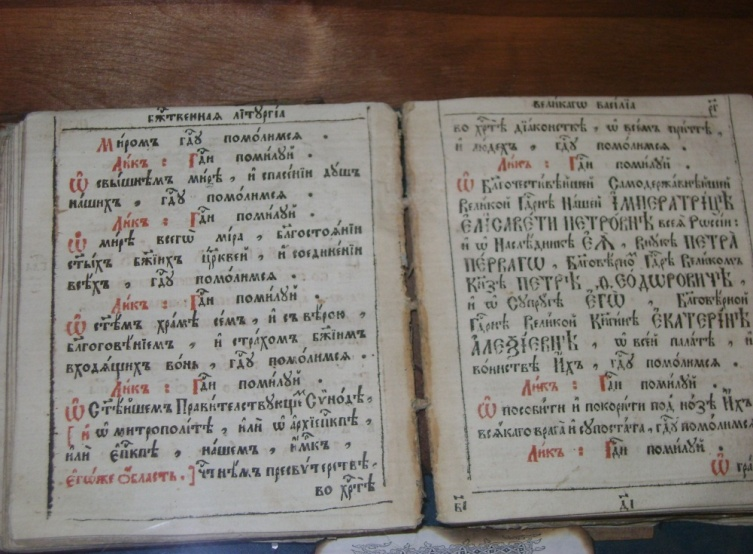 бж҃твенная лїтꙋргі́а
Ми́ромъ гдⷭ҇ꙋ помо́лимся .
Ли́къ : Гдⷭ҇и поми́лꙋй .
Ѡ свы́шнемъ ми́рѣ , и҆ спасе́нїи дꙋ́шъ
на́шихъ , гдⷭ҇ꙋ помо́лимся .
Ли́къ : Гдⷭ҇и поми́лꙋй .
Ѡ ми́рѣ всегѡ̀ мі́ра , бл҃госто́янїи
ст҃ы́хъ бж҃їихъ цр҃кве́й , и҆ соедине́нїи
всѣ́хъ , гдⷭ҇ꙋ помо́лимся .
Ли́къ : Гдⷭ҇и поми́лꙋй .
Ѡ ст҃ѣ́мъ хра́мѣ се́мъ , и҆ съ вѣ́рою ,
бл҃гоговѣ́нїемъ , и҆ стра́хомъ бж҃їимъ
входя́щихъ во́нь , гдⷭ҇ꙋ помо́лимся .
Ли́къ : Гдⷭ҇и поми́лꙋй .
Ѡ Ст҃ѣ́йшемъ Прави́телствꙋющемъ Сѵно́дѣ ,
[ и҆ ѡ митрополі́тѣ , и҆лѝ ѡ а҆рхїепⷭ҇кпѣ ,
и҆лѝ є҆пⷭ҇кпѣ , на́шемъ , и҆́мⷬ҇къ ,
є҆гѡ́же ѻ҆́бласть . ] чⷭ҇тнѣ́мъ пресвѵ́терствѣ ,
во хрⷭ҇тѣ̀
вели́кагѡ васі́лїа
во хрⷭ҇тѣ̀ дїа́конствѣ , ѡ все́мъ при́чтѣ ,
и҆ лю́дехъ , гдⷭ҇ꙋ помо́лимся .
Ли́къ : Гдⷭ҇и поми́лꙋй .
Ѡ Бл҃гочести́вѣйшей Самодержа́внѣйшей
Вели́кой Гдⷭ҇рнѣ На́шей І҆МПЕРАТРИ́ЦѢ
Є҆ЛІСАВЕ́ТИ ПЕТРО́ВНѢ всея̀ Рѡссі́и :
и҆ ѡ Наслѣ́дникѣ Є҆Ѧ̀ , Внꙋ́кѣ ПЕТРА̀
ПЕ́РВАГѠ , Бл҃говѣ́рномъ Гдⷭ҇рѣ Вели́комъ
Кн҃зѣ ПЕТРѢ̀ Ѳ҆ЕО́ДѠРОВИЧѢ ,
и҆ ѡ Сꙋпрꙋ́гѣ Є҆ГѠ̀ , Бл҃говѣ́рной
Гдⷭ҇рнѣ Вели́кой Кн҃ги́нѣ Є҆КАТЕРІ́НѢ
А҆ЛЕѮІ́ЕВНѢ , ѡ все́й пала́тѣ , и҆
во́инствѣ И҆́хъ , гдⷭ҇ꙋ помо́лимся .
Ли́къ : Гдⷭ҇и поми́лꙋй .
Ѡ пособи́ти и҆ покори́ти под но́зѣ И҆́хъ
вся́каго врага̀ и҆ сꙋпоста́та , гдⷭ҇ꙋ помо́лимся
Ли́къ : Гдⷭ҇и поми́лꙋй .
Ѡ гра